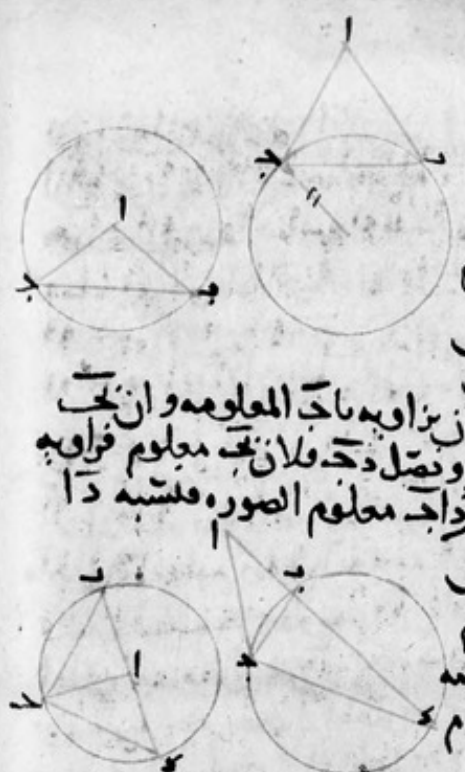 ا
ا
ج
ب
ج
ب
ن بزاويه باج المعلومه وان بج
ونصل دج فلان بج معلوم فزاويه
داج معلوم الصوره فنسبه دا
ا
ب
ب
ا
ج
ج
د
د
سه
م